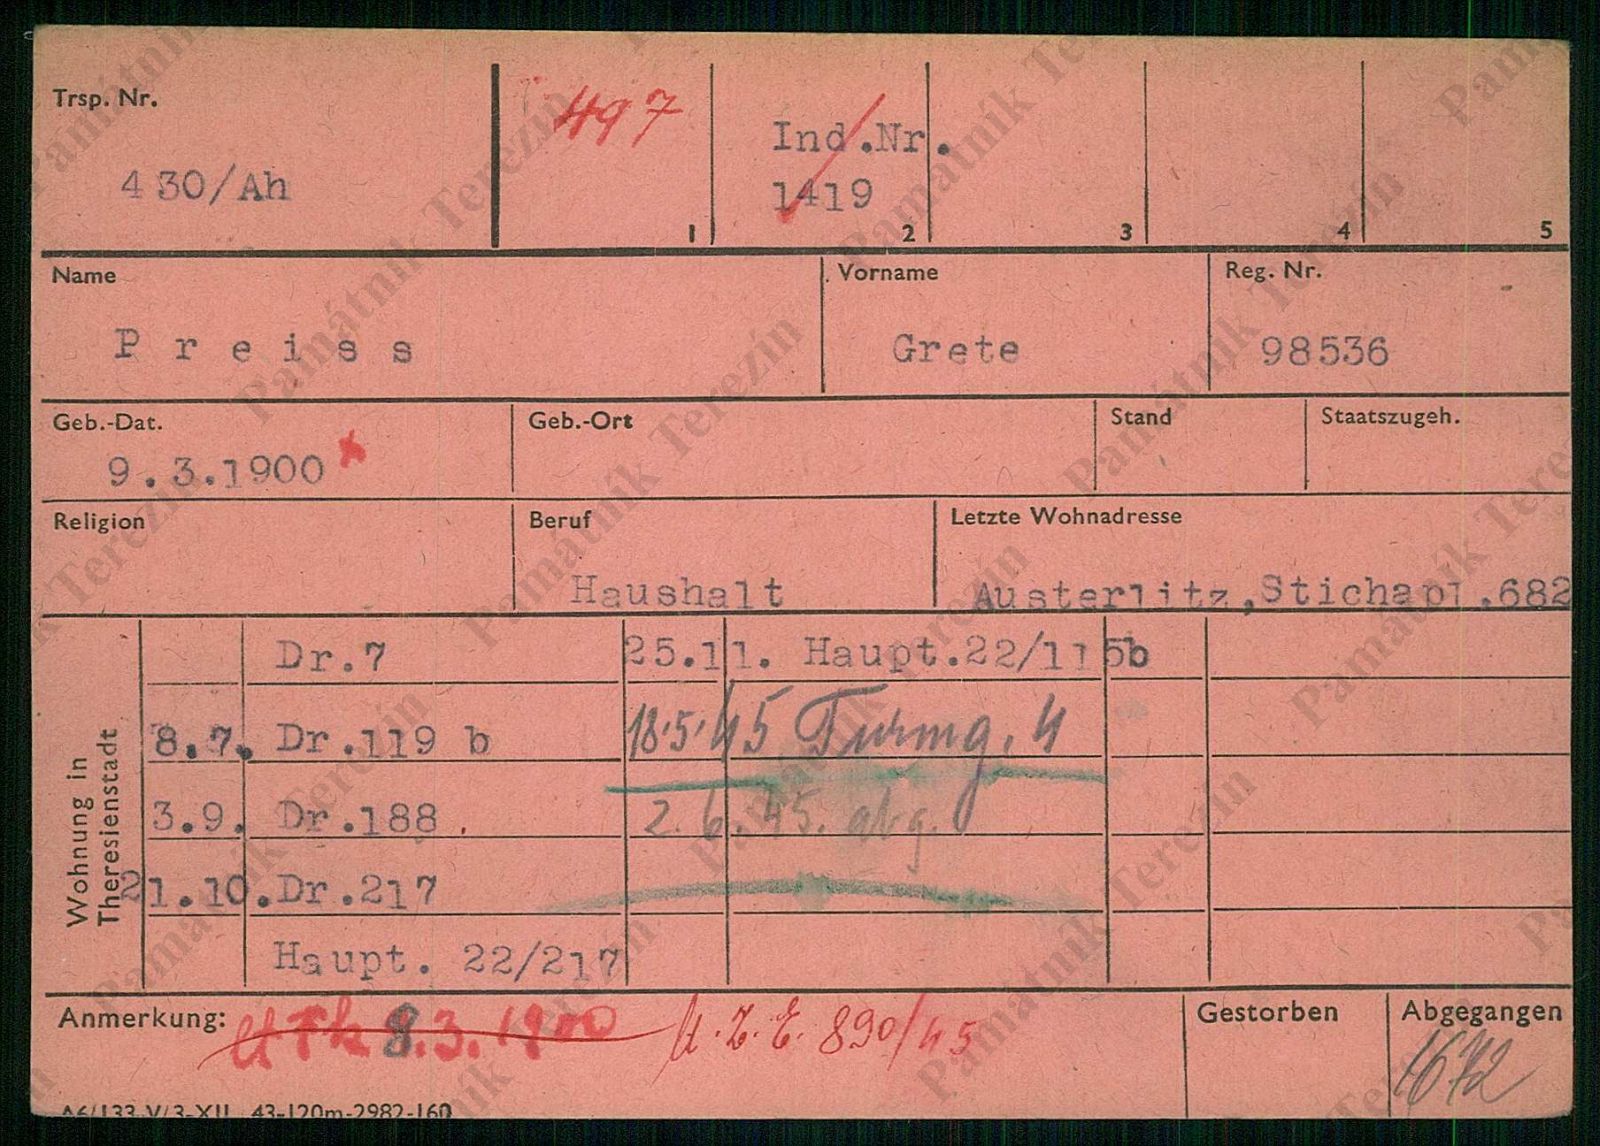 Trsp. Nr.
430/Ah
497
1
Ind.Nr.
1419
2
3
4
5
Name
Preiss
Vorname
Grete
Reg. Nr.
98536
Geb.-Dat.
9.3.1900
Geb.-Ort
Stand
Staatszugeh.
Religion
Beruf
Haushalt
Letzte Wohnadresse
Austerlitz,Stichapl.682
Wohnung in
Theresienstadt
Dr.7
8.7. Dr.119 b
3.9. Dr.188
21.10. Dr.217
Haupt. 22/217
25.11. Haupt.22/115b
18.5.45 Turmg. 4
2.6.45. abg.
Anmerkung:
8.3.1900
890/45
Gestorben
Abgegangen
1672
A6/133-V/3-XII 43-120m-2982-160
Památník Terezín